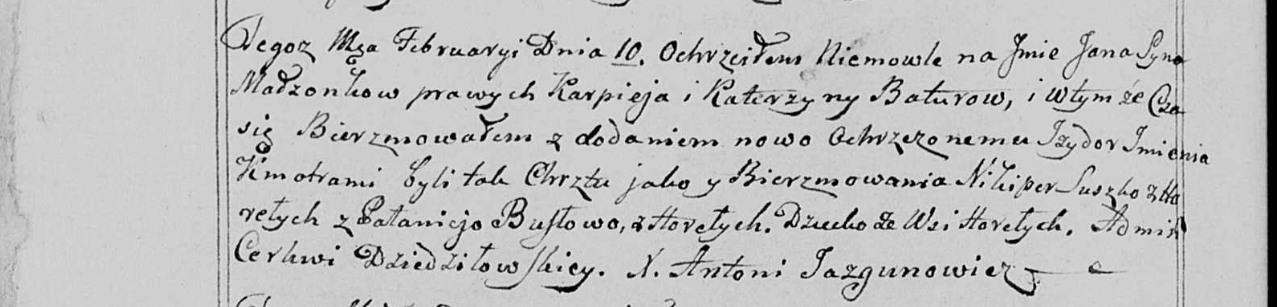 Tegoz Mca Februaryi Dnia 10. Ochrzciłem Niemowle na Jmie Jana Syna
Małzonkow prawych Karpieja i Katerzyny Baturow, i wtym że Cza
się Bierzmowałem z dodaniem nowo Ochrzczonemu Jzydor Jmienia
Kmotrami byli tak Chrztu jako y Bierzmowania Nikiper Suszko z Ho
retych z Bustowo, z Horetych. Dziecko ze Wsi Horetych. Admin
Cerkwi Dziedziłowskiey. X. Antoni Jazgunowicz